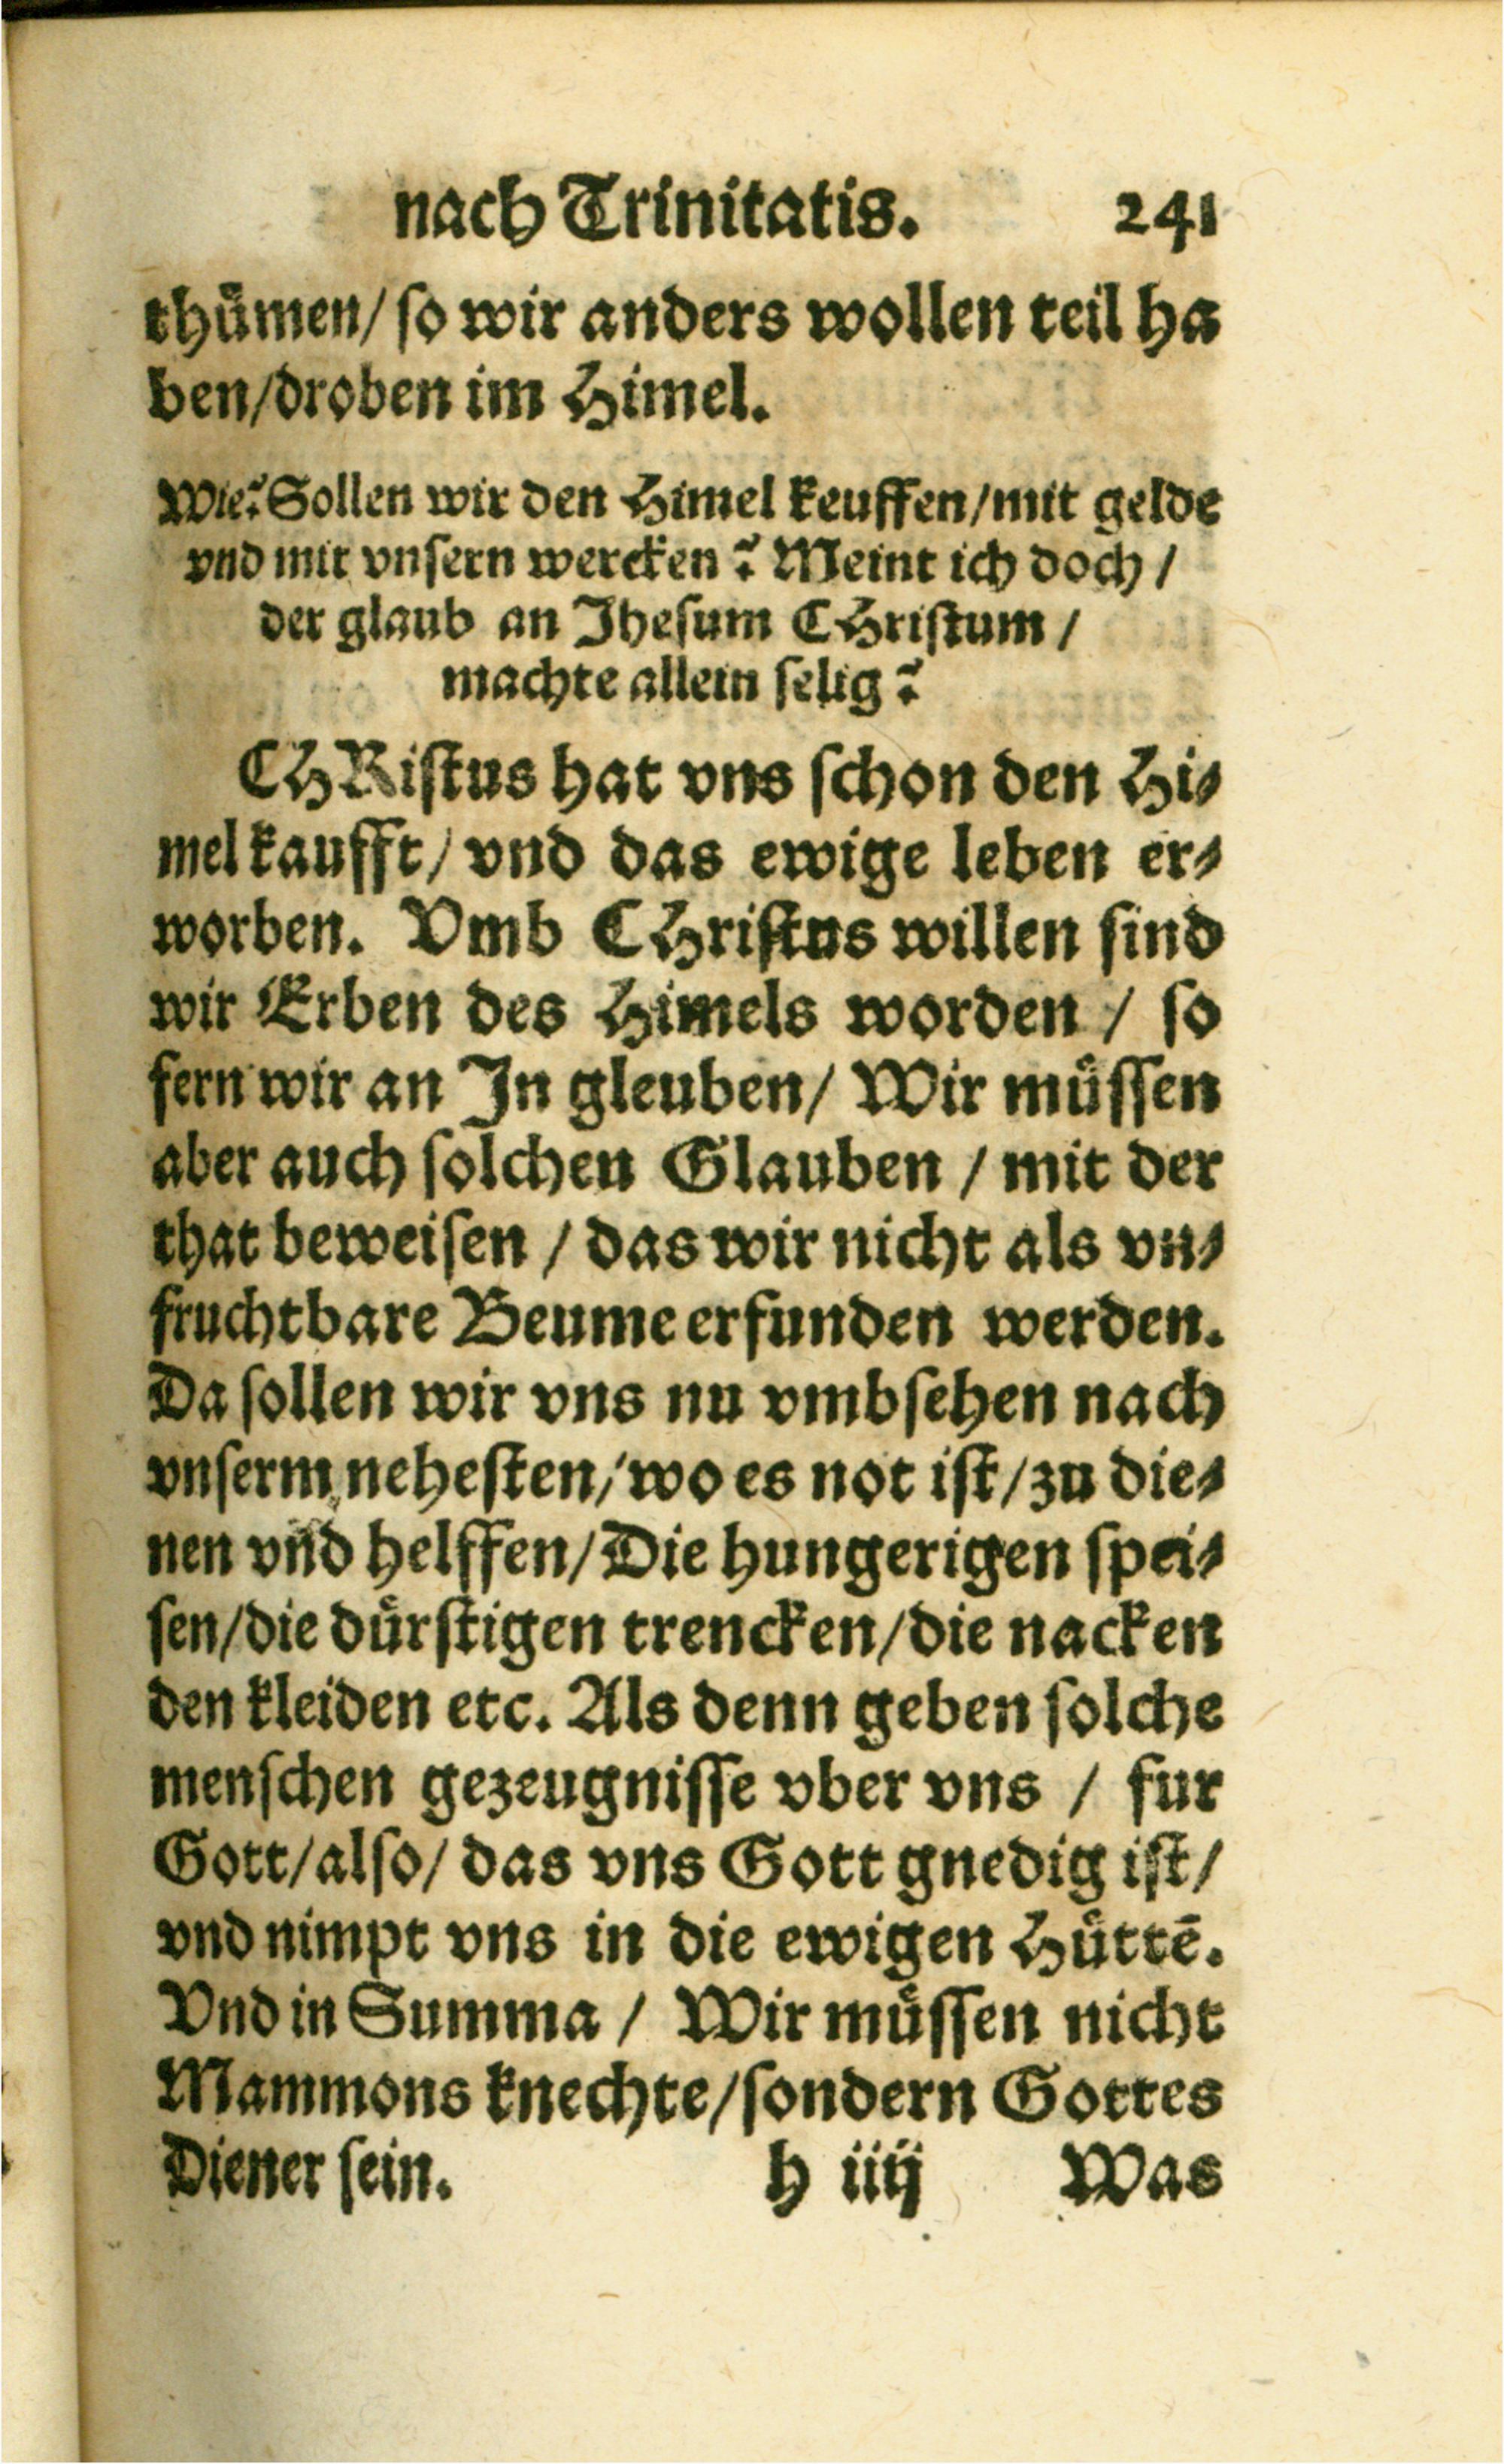 nach Trinitatis. 241
thuͤmen/ ſo wir anders wollen teil ha
ben/droben im Himel.
Wie? Sollen wir den Himel keuffen/mit gelde
vnd mit vnſern wercken? Meint ich doch/
der glaub an Jheſum CHriſtum/
machte allein ſelig?
CHRiſtus hat vns ſchon den Hi⸗
mel kaufft/ vnd das ewige leben er⸗
worben. Vmb CHriſtus willen ſind
wir Erben des Himels worden / ſo
fern wir an Jn gleuben/ Wir muͤſſen
aber auch ſolchen Glauben / mit der
that beweiſen / das wir nicht als vn⸗
fruchtbare Beume erfunden werden.
Da ſollen wir vns nu vmbſehen nach
vnſerm neheſten/ wo es not iſt/zu die⸗
nen vnd helffen/Die hungerigen ſpei⸗
ſen/die duͤrſtigen trencken/die nacken
den kleiden etc. Als denn geben ſolche
menſchen gezeugniſſe vber vns / fur
Gott/alſo/ das vns Gott gnedig iſt/
vnd nimpt vns in die ewigen Huͤttē.
Vnd in Summa / Wir muͤſſen nicht
Mammons knechte/ſondern Gottes
Diener ſein. h iiij Was